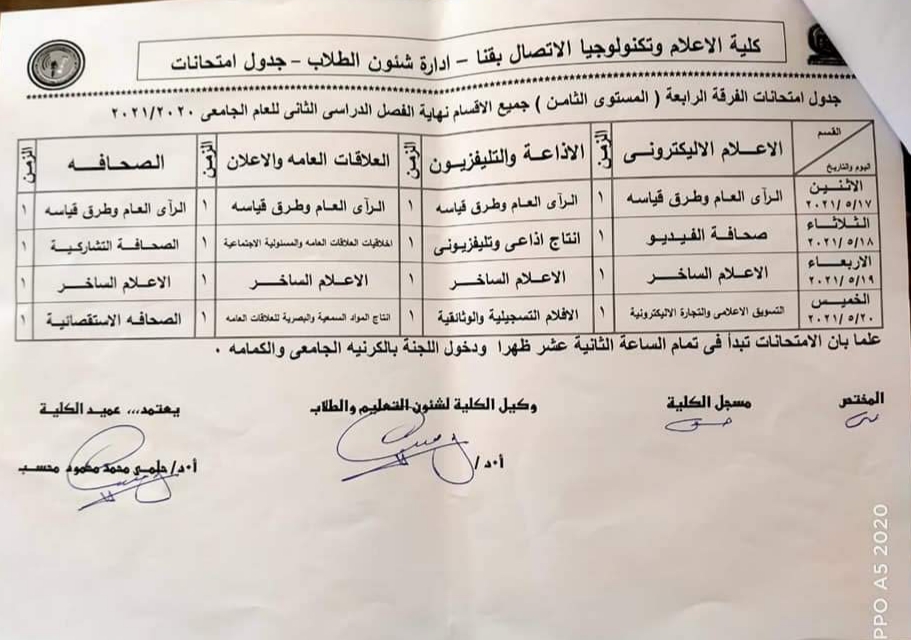 كلية الاعلام وتكنولوجيا الاتصال بقنا – ادارة شئون الطلاب – جدول امتحانات
جدول امتحانات الفرقة الرابعة ( المستوى الثامن ) جميع الاقسام نهاية الفصل الدراسى الثانى للعام الجامعى ٢٠٢١/٢٠٢٠
القسم اليوم والتاريخ الاعلام الاليكترونى الزمن الاذاعة والتليفزيون الزمن العلاقات العامه والاعلان الزمن الصحافه الزمن
الاثنين ٢٠٢١/٥/١٧ الرآى العام وطرق قياسه ١ الرآى العام وطرق قياسه ١ الرآى العام وطرق قياسه ١ الرآى العام وطرق قياسه ١
الثلاثاء ٢٠٢١/٥/١٨ صحافة الفيديو ١ انتاج اذاعى وتليفزيونى ١ اخلاقيات العلاقات العامه والمسئولية الاجتماعية ١ الصحافة التشاركية ١
الاربعاء ٢٠٢١/٥/١٩ الاعلام الساخر ١ الاعلام الساخر ١ الاعلام الساخر ١ الاعلام الساخر ١
الخميس ٢٠٢١/٥/٢٠ التسويق الاعلامى والتجارة الاليكترونية ١ الافلام التسجيلية والوثائقية ١ انتاج المواد السمعية والبصرية للعلاقات العامه ١ الصحافه الاستقصائية ١
علما بان الامتحانات تبدأ فى تمام الساعة الثانية عشر ظهرا ودخول اللجنة بالكرنيه الجامعى والكمامه .
المختص مسجل الكلية وكيل الكلية لشئون التعليم والطلاب يعتمد،،، عميد الكلية
أ٠د/ أ٠د/ حلمي محمد محمود محسب
PPO A5 2020